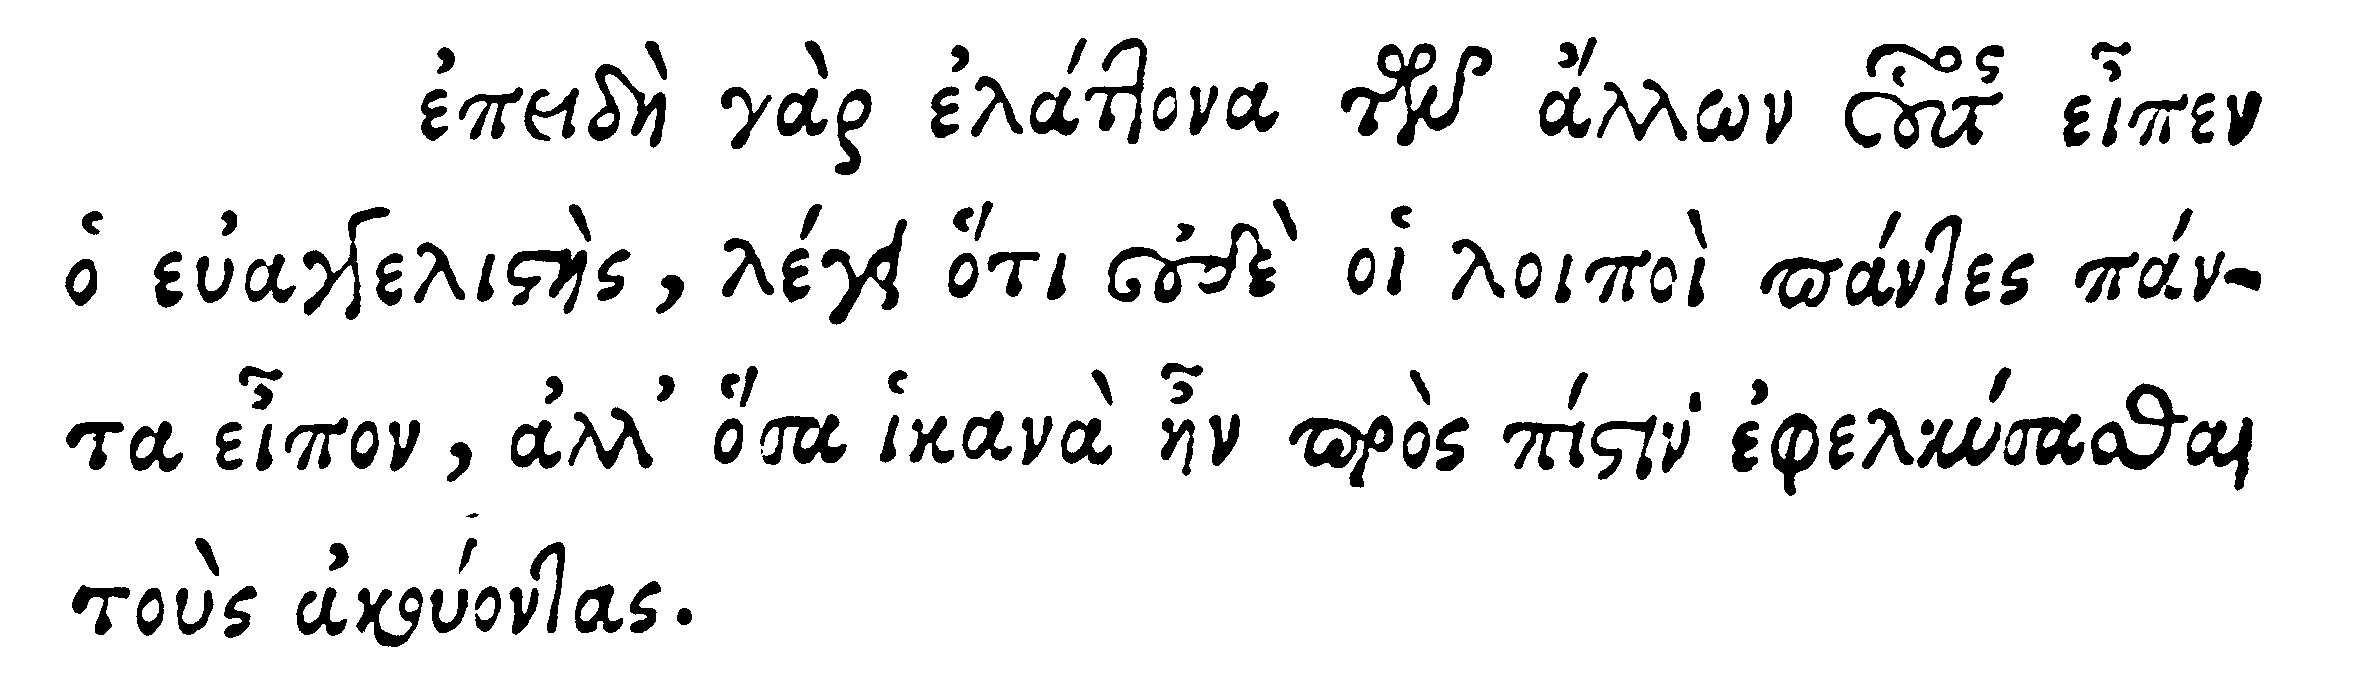 ἐπειδὴ γὰρ ἐλάττονα τῶν ἄλλων οὗτος εἶπεν
ὁ εὐαγγελιστὴς, λέγει ὅτι οὐδὲ οἱ λοιποὶ πάντες πάν-
τα εἶπον, ἀλλ’ ὅσα ἱκανὰ ἦν πρὸς πίστιν ἐφελκύσασθαι
τοὺς ἀκούοντας.